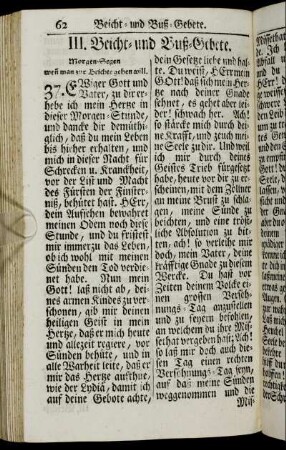 62 Beicht- und Buß-Gebete.
III. Beicht- und Buß-Gebete.
Morgen-Segen
wenn man zur Beichte gehen will.
37. EWiger Gott und
Vater, zu dir er-
hebe ich mein Hertze in
dieser Morgen-Stunde,
und dancke dir demüthi-
glich, daß du mein Leben
bis hieher erhalten, und
mich in dieser Nacht für
Schrecken u. Kranckheit,
vor der List und Macht
des Fürsten der Finster-
niß, behütet hast. HErr,
dein Aufsehen bewahret
meinen Odem noch diese
Stunde, und du fristest
mir immerzu das Leben,
ob ich wohl mit meinen
Sünden den Tod verdie-
net habe. Nun mein
Gott! laß nicht ab, dei-
nes armen Kindes zu ver-
schonen, gib mir deinen
heiligen Geist in mein
Hertze, daß er mich heute
und allezeit regiere, vor
Sünden behüte, und in
alle Warheit leite, daß er
mir das Hertze aufthue,
wie der Lydiä, damit ich
auf deine Gebote achte,
dein Gesetze liebe und hal-
te. Du weist, HErr mein
GOtt! daß sich mein Her-
tze nach deiner Gnade
sehnet, es gehet aber lei-
der! schwach her. Ach!
so stärcke mich durch dei-
ne Krafft, und zeuch mei-
ne Seele zu dir. Und weil
ich mir durch deines
Geistes Trieb fürgesetzt
habe, heute vor dir zu er-
scheinen, mit dem Zöllner
an meine Brust zu schla-
gen, meine Sünde zu
beichten, und eine tröst-
liche Absolution zu bit-
ten, ach! so verleihe mir
doch, mein Vater, deine
kräfftige Gnade zu diesem
Wercke. Du hast vor
Zeiten deinem Volcke ei-
nen grossen Versöh-
nungs-Tag anzustellen
und zu feyern befohlen,
an welchem du ihre Mis-
sethat vergeben hast: Ach!
so laß mir doch auch die-
sen Tag einen rechten
Versöhnungs-Tag seyn,
auf daß meine Sünden
weggenommen und die
Mis-